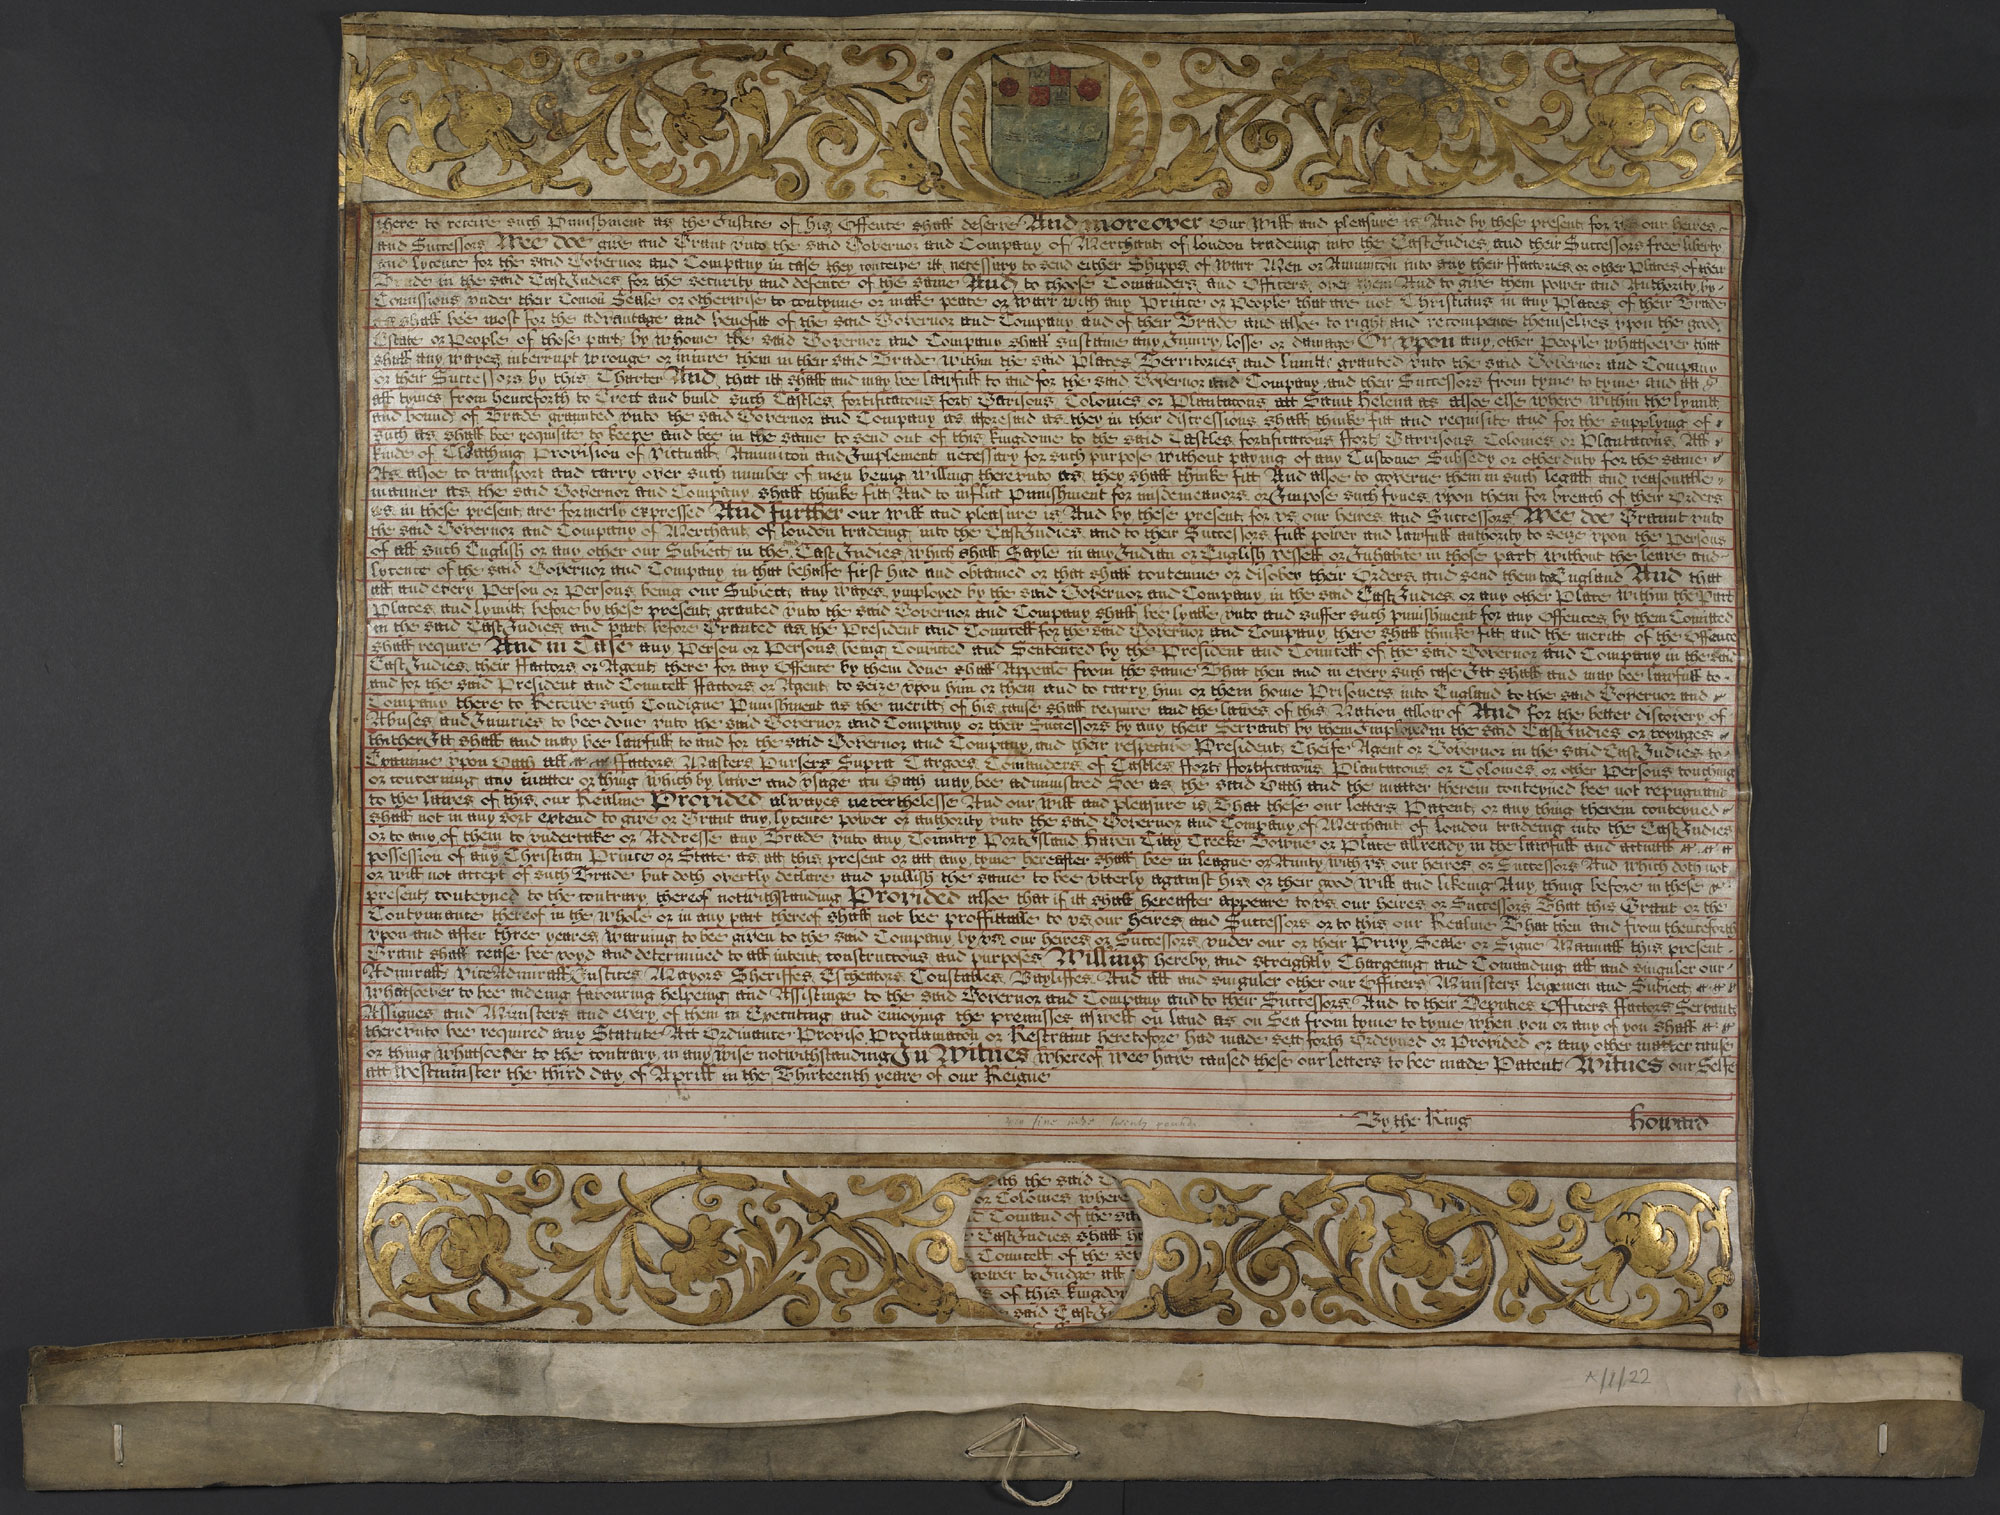 there to receive such Punishment as the Justice of his Offence shall deserve And moreover Our Will and pleasure is And by these present for vs our heires
and Successors Wee doe give and Grant vnto the said Governor and Company of Merchant of london tradeing into the East Indies and their Successors free liberty
and lycence for the said Governor and Company in case they conceive itt necessary to send either Shipps of Warr Men or Amuniton into any their Factories or other Places of their
Trade in the said East Indies for the security and defence of the same And to choose Comanders and Officers over them And to give them power and Authority by
Comissions vnder their Comon Seale or otherwise to contynue or make peace or Warr with any Prince or People that are not Christians in any Places of their Trade
as shall bee most for the advantage and benefitt of the said Governor and Company and of their Trade and alsoe to right and recompence themselves vpon the good
Estate or People of those part by whome the said Governor and Company shall sustaine any Injury losse or damage Or vpon any other People whatsoever that
shall any wayes interrupt wronge or iniure them in their said Trade within the said Places Territories and lymitt granted vnto the said Governor and Company
or their Successors by this Charter And that itt shall and may bee lawfull to and for the said Governor and Company and their Successors from tyme to tyme and att
all tymes from henceforth to Erect and build such Castles fortificatons fort Garisons Colonies or Plantatons att Saint Helena as alsoe else where within the lymitt
and bound of Trade granted vnto the said Governor and Company as aforesaid as they in their discressions shall thinke fitt and requisite and for the supplying of
such as shall bee requisite to keepe and bee in the same to send out of this kingdome to the said Castles fortificatons Fort Garrisons Colonies or Plantatons All
kinde of Cloathing Provision of Victuall Amuniton and Implement necessary for such purpose without paying of any Custome Subsedy or other duty for the same
As alsoe to transport and carry over such number of men being willing therevnto as they shall thinke fitt And alsoe to governe them in such legall and reasonable
manner as the said Governor and Company shall thinke fitt And to inflict Punishment for misdemeanors or Impose such fynes vpon them for breach of their Orders
as in these present are formerly expressed And further our will and pleasure is And by these present for vs our heires and Successors Wee doe Graunt vnto
the said Governor and Company of Merchant of london tradeing into the East Indies and to their Successors full power and lawfull authority to seize vpon the Persons
of all such English or any other our Subiect in the said East Indies which shall Sayle in any Indian or English vessell or Inhabite in those part without the leave and
lycence of the said Governor and Company in that behalfe first had and obtained or that shall contemne or disobey their Orders and send them to England And that
all and every Person or Persons being our Subiect any wayes ymployed by the said Governor and Company in the said East Indies or any other Place within the Part
Places and lymitt before by these present granted vnto the said Governor and Company shall bee lyable vnto and suffer such punishment for any Offences by them Comitted
in the said East Indies and part before Granted as the President and Councell for the said Governor and Company there shall thinke fitt and the meritt of the Offence
shall require And in Case any Person or Persons being Convicted and Sentenced by the President and Councell of the said Governor and Company in the said
East Indies their Factors or Agent there for any Offence by them done shall Appeale from the same That then and in every such case Itt shall and may bee lawfull to
and for the said President and Councell Factors or Agent to seize vpon him or them and to carry him or them home Prisoners into England to the said Governor and
Company there to Receive such Condigne Punishment as the meritt of his cause shall require and the lawes of this Nation allow of And for the better discovery of
Abuses and Iniuries to bee done vnto the said Governor and Company or their Successors by any their Servant by them Imployed in the said East Indies or voyages
thither Itt shall and may bee lawfull to and for the said Governor and Company and their respective President Cheife Agent or Governor in the said East Indies to
Examine vpon Oath all Factors Masters Pursers Supra Cargoes Comanders of Castles Fort Fortificatons Plantatons or Colonies or other Persons touching
or concerning any matter or thing which by lawe and vsage an Oath may bee administred Soe as the said Oath and the matter therein conteyned bee not repugnant
to the lawes of this our Realme Provided alwayes neverthelesse And our will and pleasure is That these our letters Patent or any thing therein conteyned
shall not in any sort extend to give or Grant any lycence power or authority vnto the said Governor and Company of Merchant of london tradeing into the East Indies
or to any of them to vndertake or Addresse any Trade vnto any Country Port Island Haven Citty Creeke Towne or Place allready in the lawfull and actuall
possession of any such Christian Prince or State as att this present or att any tyme hereafter shall bee in league or Amity with vs our heires or Successors And which doth not
or will not accept of such Trade but doth overtly declare and publish the same to bee vtterly against his or their good will and likeing Any thing before in these
present conteyned to the contrary thereof notwithstanding Provided alsoe that if itt shall hereafter appeare to vs our heires or Successors That this Grant or the
Contynuance thereof in the whole or in any part thereof shall not bee proffittable to vs our heires and Successors or to this our Realme That then and from thenceforth
vpon and after three yeares warning to bee given to the said Company by vs our heires or Successors vnder our or their Privy Seale or Signe Manuall this present
Grant shall cease bee voyd and determined to all intent constructons and purposes Willing hereby and streightly Chargeing and Comanding all and singuler our
Admirall ViceAdmirall Justices Mayors Sheriffes Escheators Constables Bayliffes And all and singuler other our Officers Ministers leigemen and Subiect
whatsoever to bee aideing favouring helpeing and Assistinge to the said Governor and Company and to their Successors And to their Deputies Officers Factors Servant
Assignes and Ministers and every of them in Executing and enioying the premisses aswell on land as on Sea from tyme to tyme when you or any of you shall
therevnto bee required any Statute Act Ordinance Proviso Proclamaton or Restraint heretofore had made sett forth Ordeyned or Provided or any other matter cause
or thing whatsoever to the contrary in any wise notwithstanding In Witnes whereof wee have caused these our letters to bee made Patent Witnes our Selfe
att Westminster the third day of Aprill in the Thirteenth yeare of our Reigne
By the King Howard
the said
or Colonies where
Comand of the sa
East Indies shall h
Councell of the se
power to Judge all
of this kingdo
said East I
A/1/22